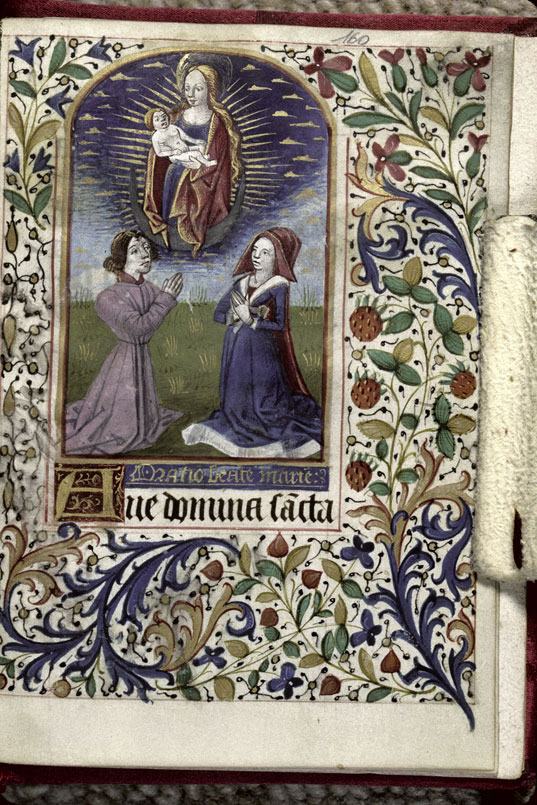 160
Oratio beate marie :
Aue domina sc̄ta